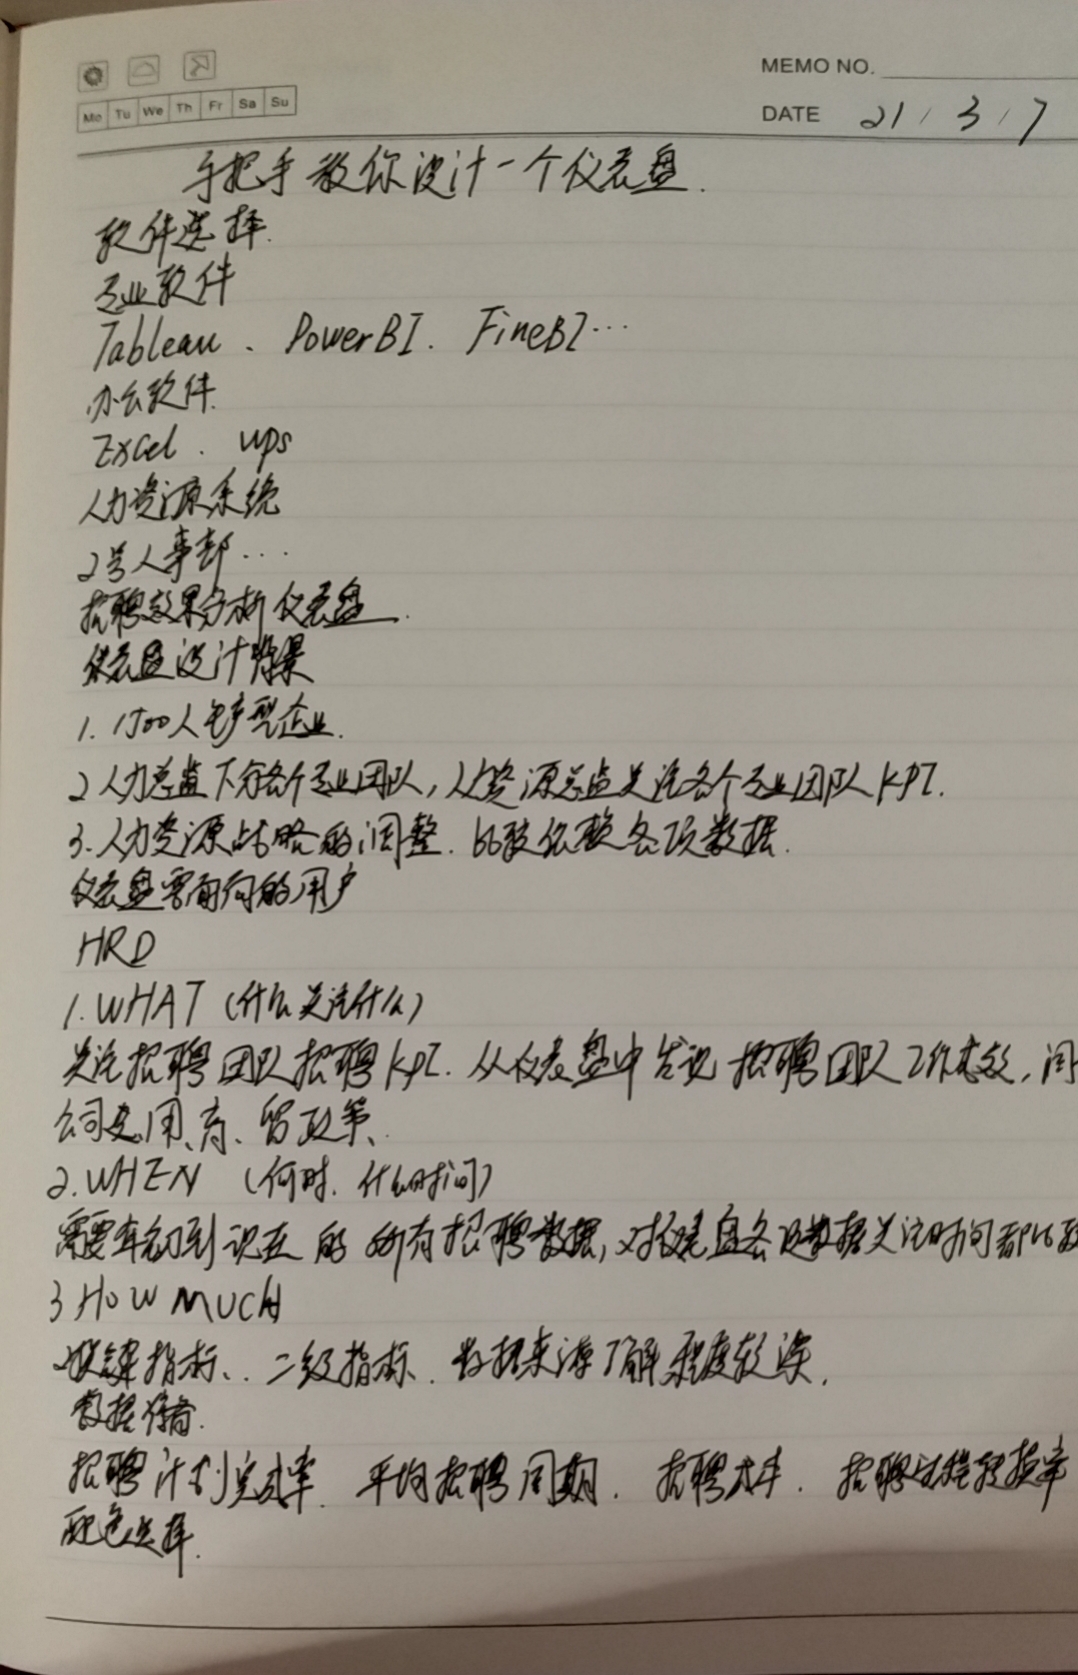 MEMO NO.
Mo Tu We Th Fr Sa Su
DATE 21/3/7
手把手教你设计一个仪表盘.
软件选择.
专业软件
Tableau、PowerBI. FineBI…
办公软件.
Excel. wps
人力资源系统
2号人事部…
招聘效果分析仪表盘.
仪表盘设计背景
1. 1500人生产型企业.
2 人力总监下分各个专业团队,人力资源总监关注各个专业团队KPI.
3.人力资源战略的调整.比较依赖各项数据.
仪表盘需面向的用户
HRD
1.WHAT (什么关注什么)
关注招聘团队招聘KPI.从仪表盘中发现招聘团队工作成效,
公司选、用、育、留政策、
2.WHEN (何时.什么时间)
需要年初到现在的所有招聘数据,对仪表盘各项数据关注时间都比较
3 HOW MUCH
关键指标、二级指标.数据来源了解程度较深.
数据准备.
招聘计划完成率.平均招聘周期.招聘成本.招聘过程转换率
配色选择.